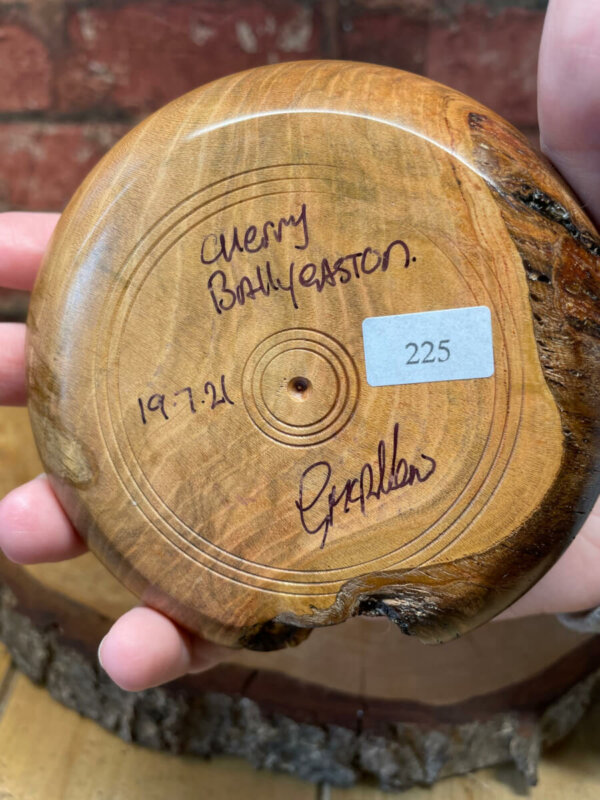 cherry
BAllyEASTON.
225
19.7.21